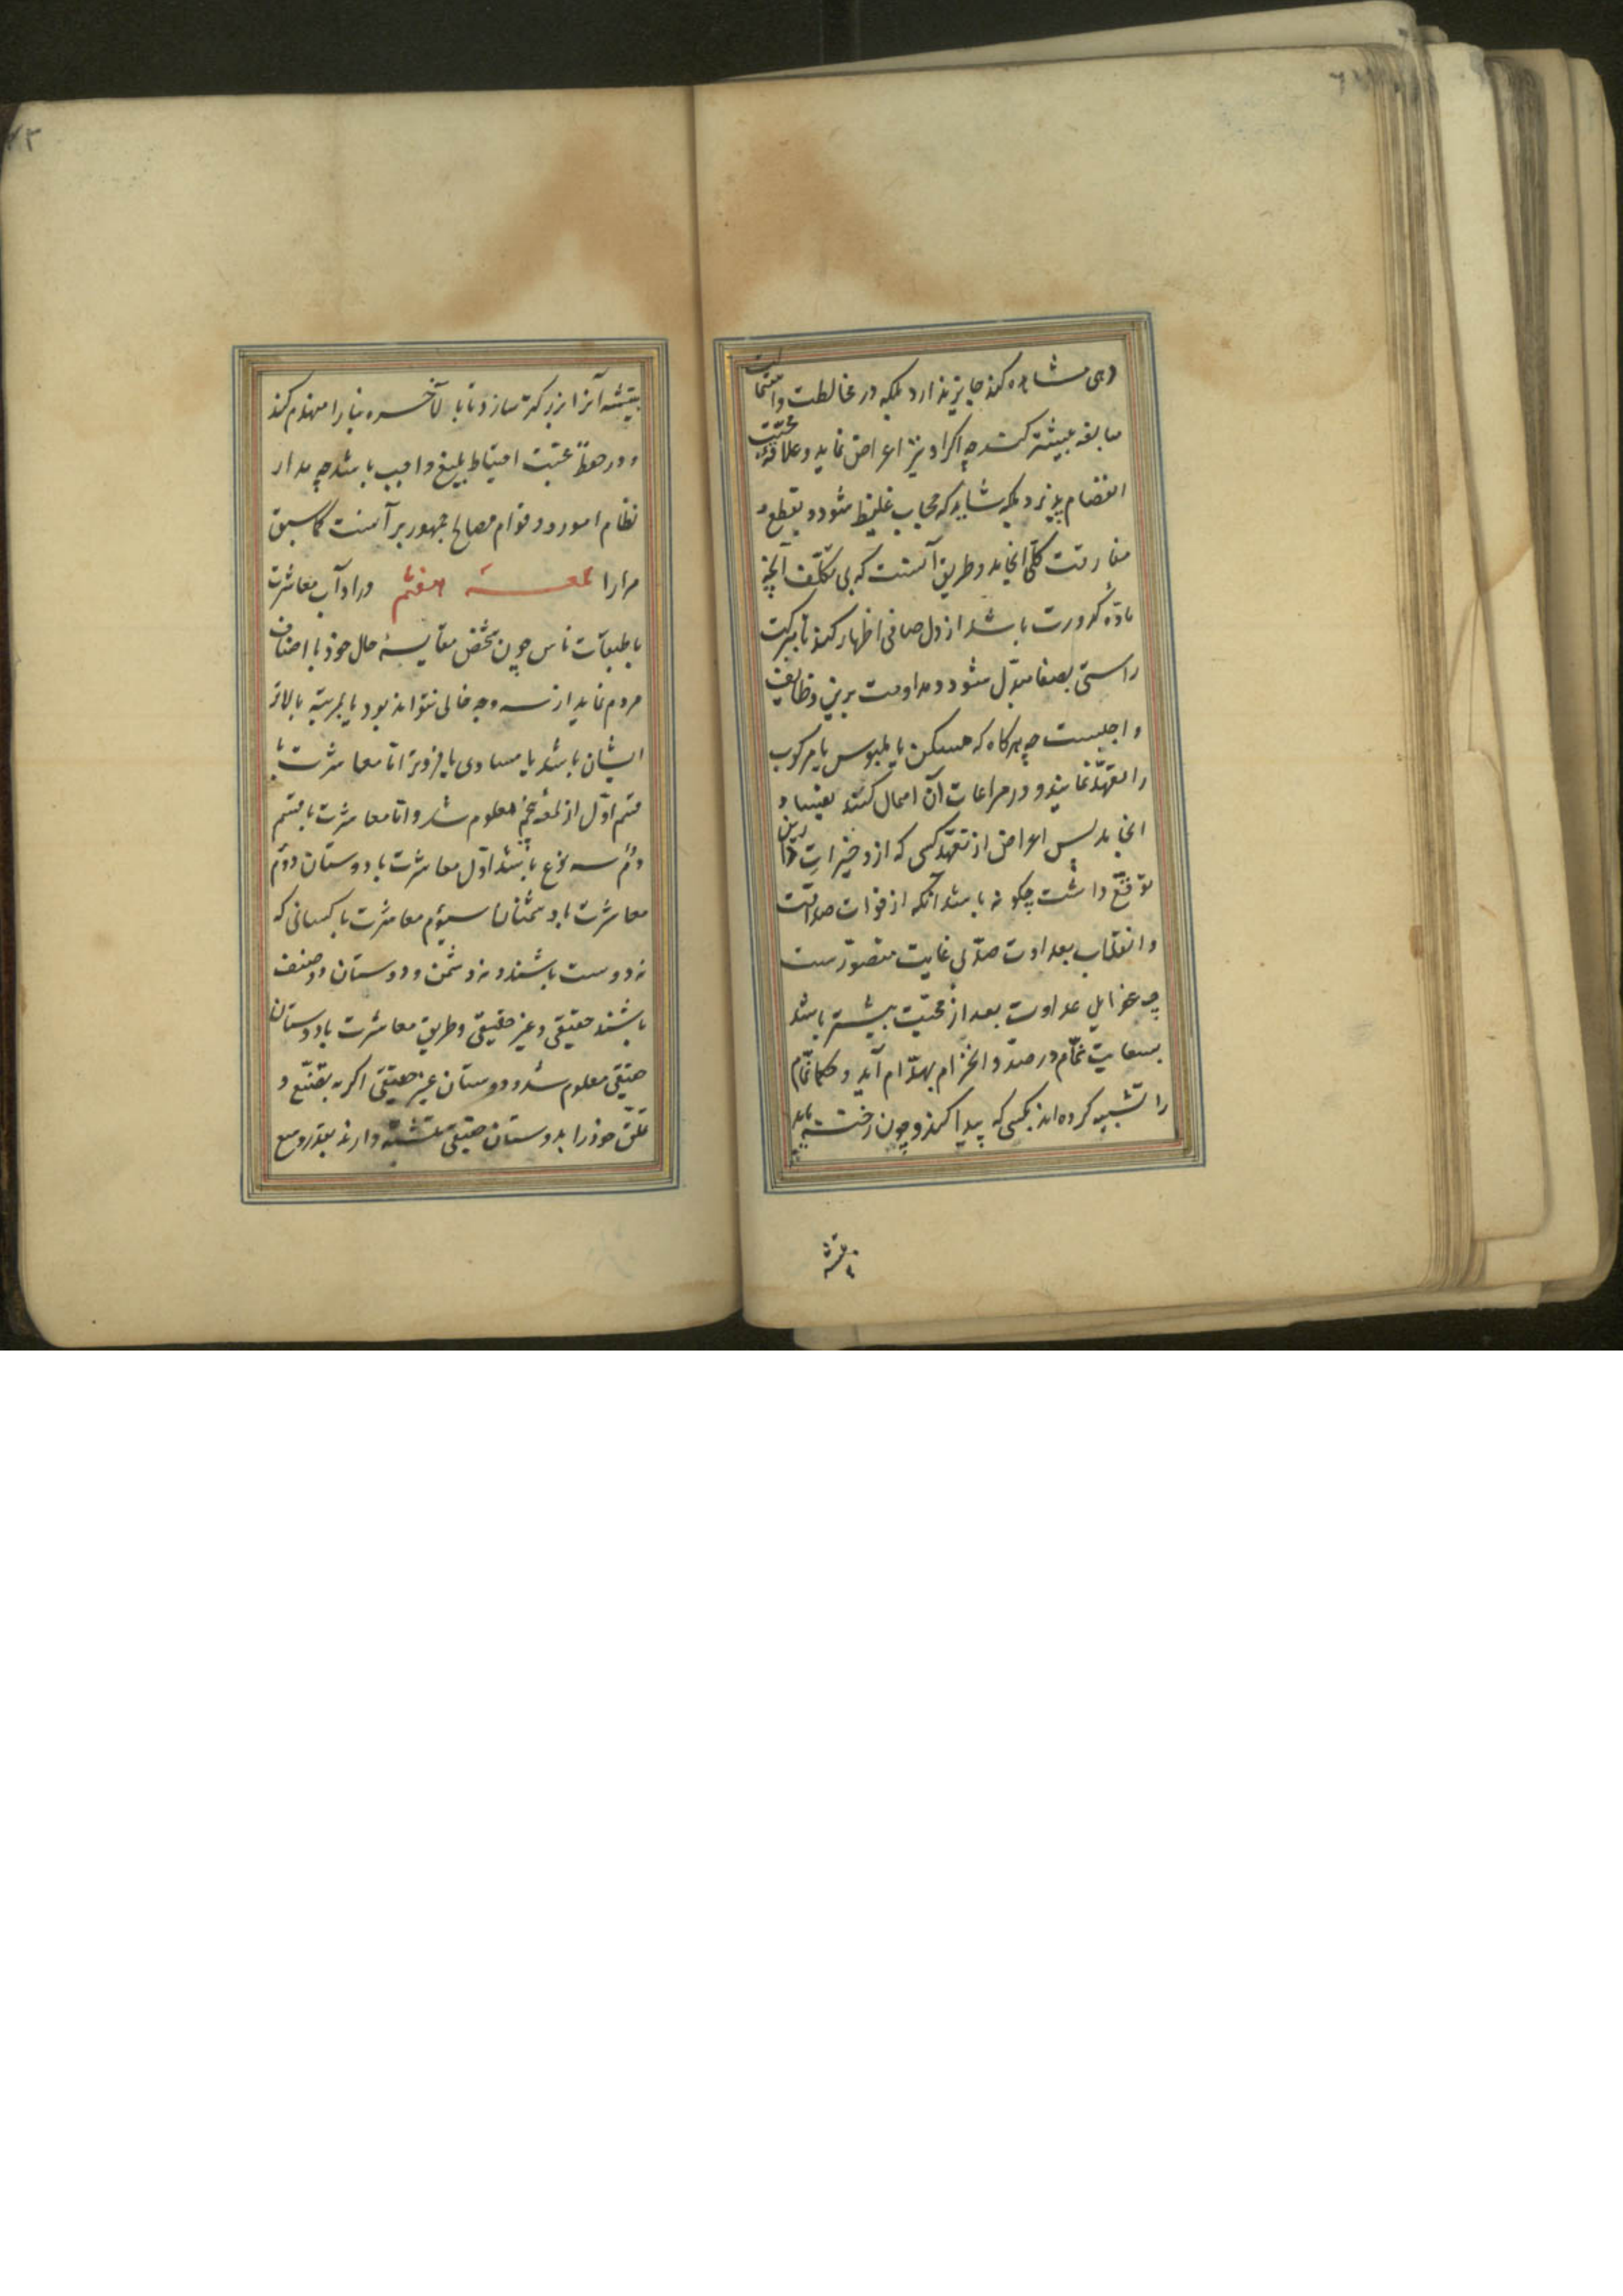 وهی مشاهده کند جایز ندارد بلکه در مخالطت و استمالت
مبالغه بیشتر کند چه اگر او نیز اعراض نماید و علاقهٔ محبّت
انفصام پذیرد بلکه شاید که حجاب غلیظ شود و بقطع و
مفارقت کلّی انجامد و طریق آنست که بی تکلّف آنچه
مادّه کدورت باشد از دل صافی اظهار کند تا ببرکت
راستی بصفا مبدّل شود و مداومت برین وظایف
واجبست چه هرگاه که مسکن یا ملبوس یا مرکوب
را تعهّد نمایند و در مراعات آن اهمال کنند بفساد
انجامد پس اعراض از تعهّد کسی که ازو خیرات دارین
توقّع داشت چگونه باشد آنکه از فوات صداقت
و انقلاب بعداوت ضدّ بی غایت متصوّرست
چه غوایل عداوت بعد از محبّت بیشتر باشد
بسعایت نمّام درصدد انخرام بهدّام آید و حکما نمّام
را تشبیه کرده اند بکسی که پیدا کند و چون رخنه یابد
بتیشه
۷۳
بتیشه آنرا بزرگتر سازد تا بالآخره بنا را منهدم کند
و در حفظ محبّت احتیاط بلیغ واجب باشد چه مدار
نظام امور و قوام مصالح جمهور بر آنست کما سبق
مرارا لمعه هفتم در آداب معاشرت
با طبقات ناس چون شخص مقایسهٔ حال خود با اصناف
مردم نماید از سه وجه خالی نتواند بود یا بمرتبه بالاتر
ایشان باشد یا مساوی یا فروتر امّا معاشرت با
قسم اوّل از لمعهٔ پنجم معلوم شد و امّا معاشرت با قسم
دوّم سه نوع باشد اوّل معاشرت با دوستان دوّم
معاشرت با دشمنان سیوّم معاشرت با کسانی که
نه دوست باشند و نه دشمن و دوستان دو صنف
باشند حقیقی و غیر حقیقی و طریق معاشرت با دوستان
حقیقی معلوم شد و دوستان غیر حقیقی اگر به تصنّع و
تملّق خود را بدوستان حقیقی متشبّه دارند بقدر وسع